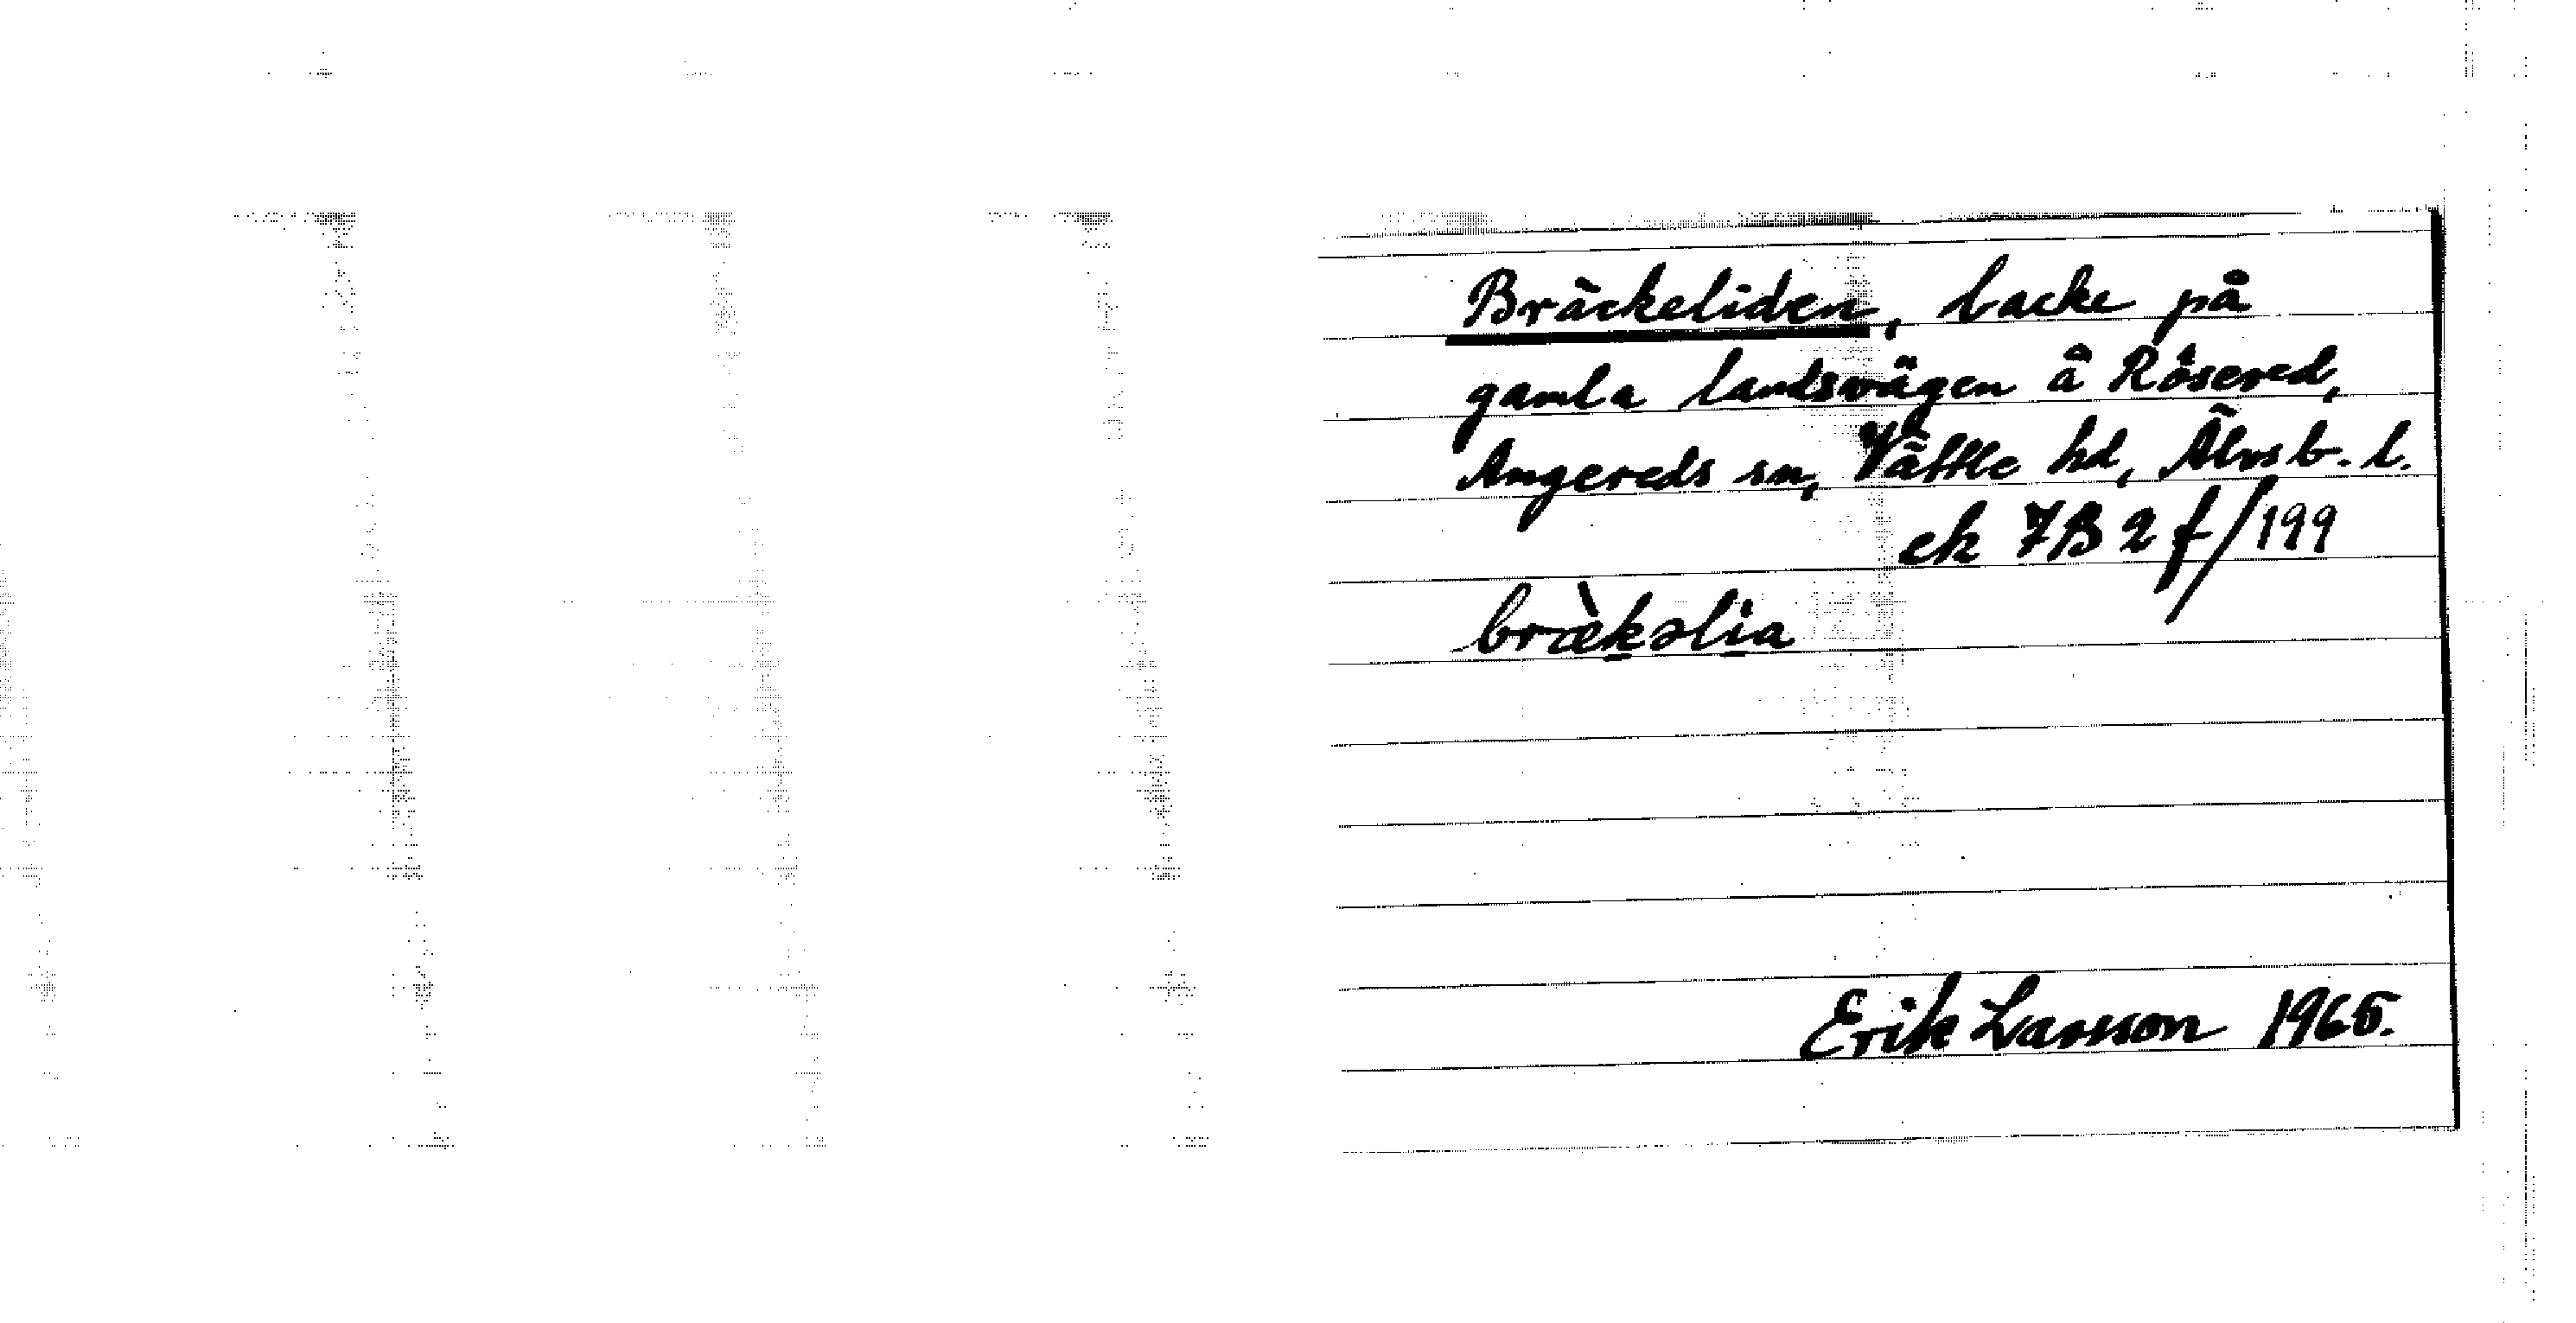 Bräckeliden, backe på
gamla landsvägen å Rösered,
Angereds sn, Vättle hd, Älvsb. l.
ek 7B 2 f/199
bræ̀k̲əli̲a
Erik Larsson 1965.